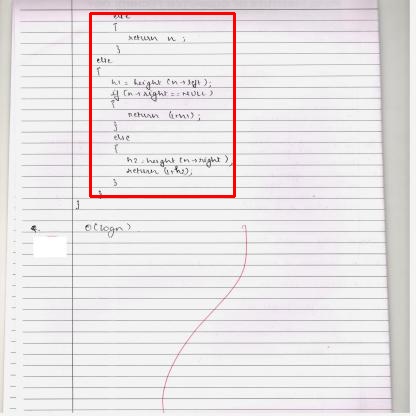 else
{
return n ;
}
else
{
h1 = height (n→left);
if (n→right == NULL)
{
return (1+h1) ;
}
else
{
h2 = height (n→right),
return (1+h2);
}
}
}
O(logn)